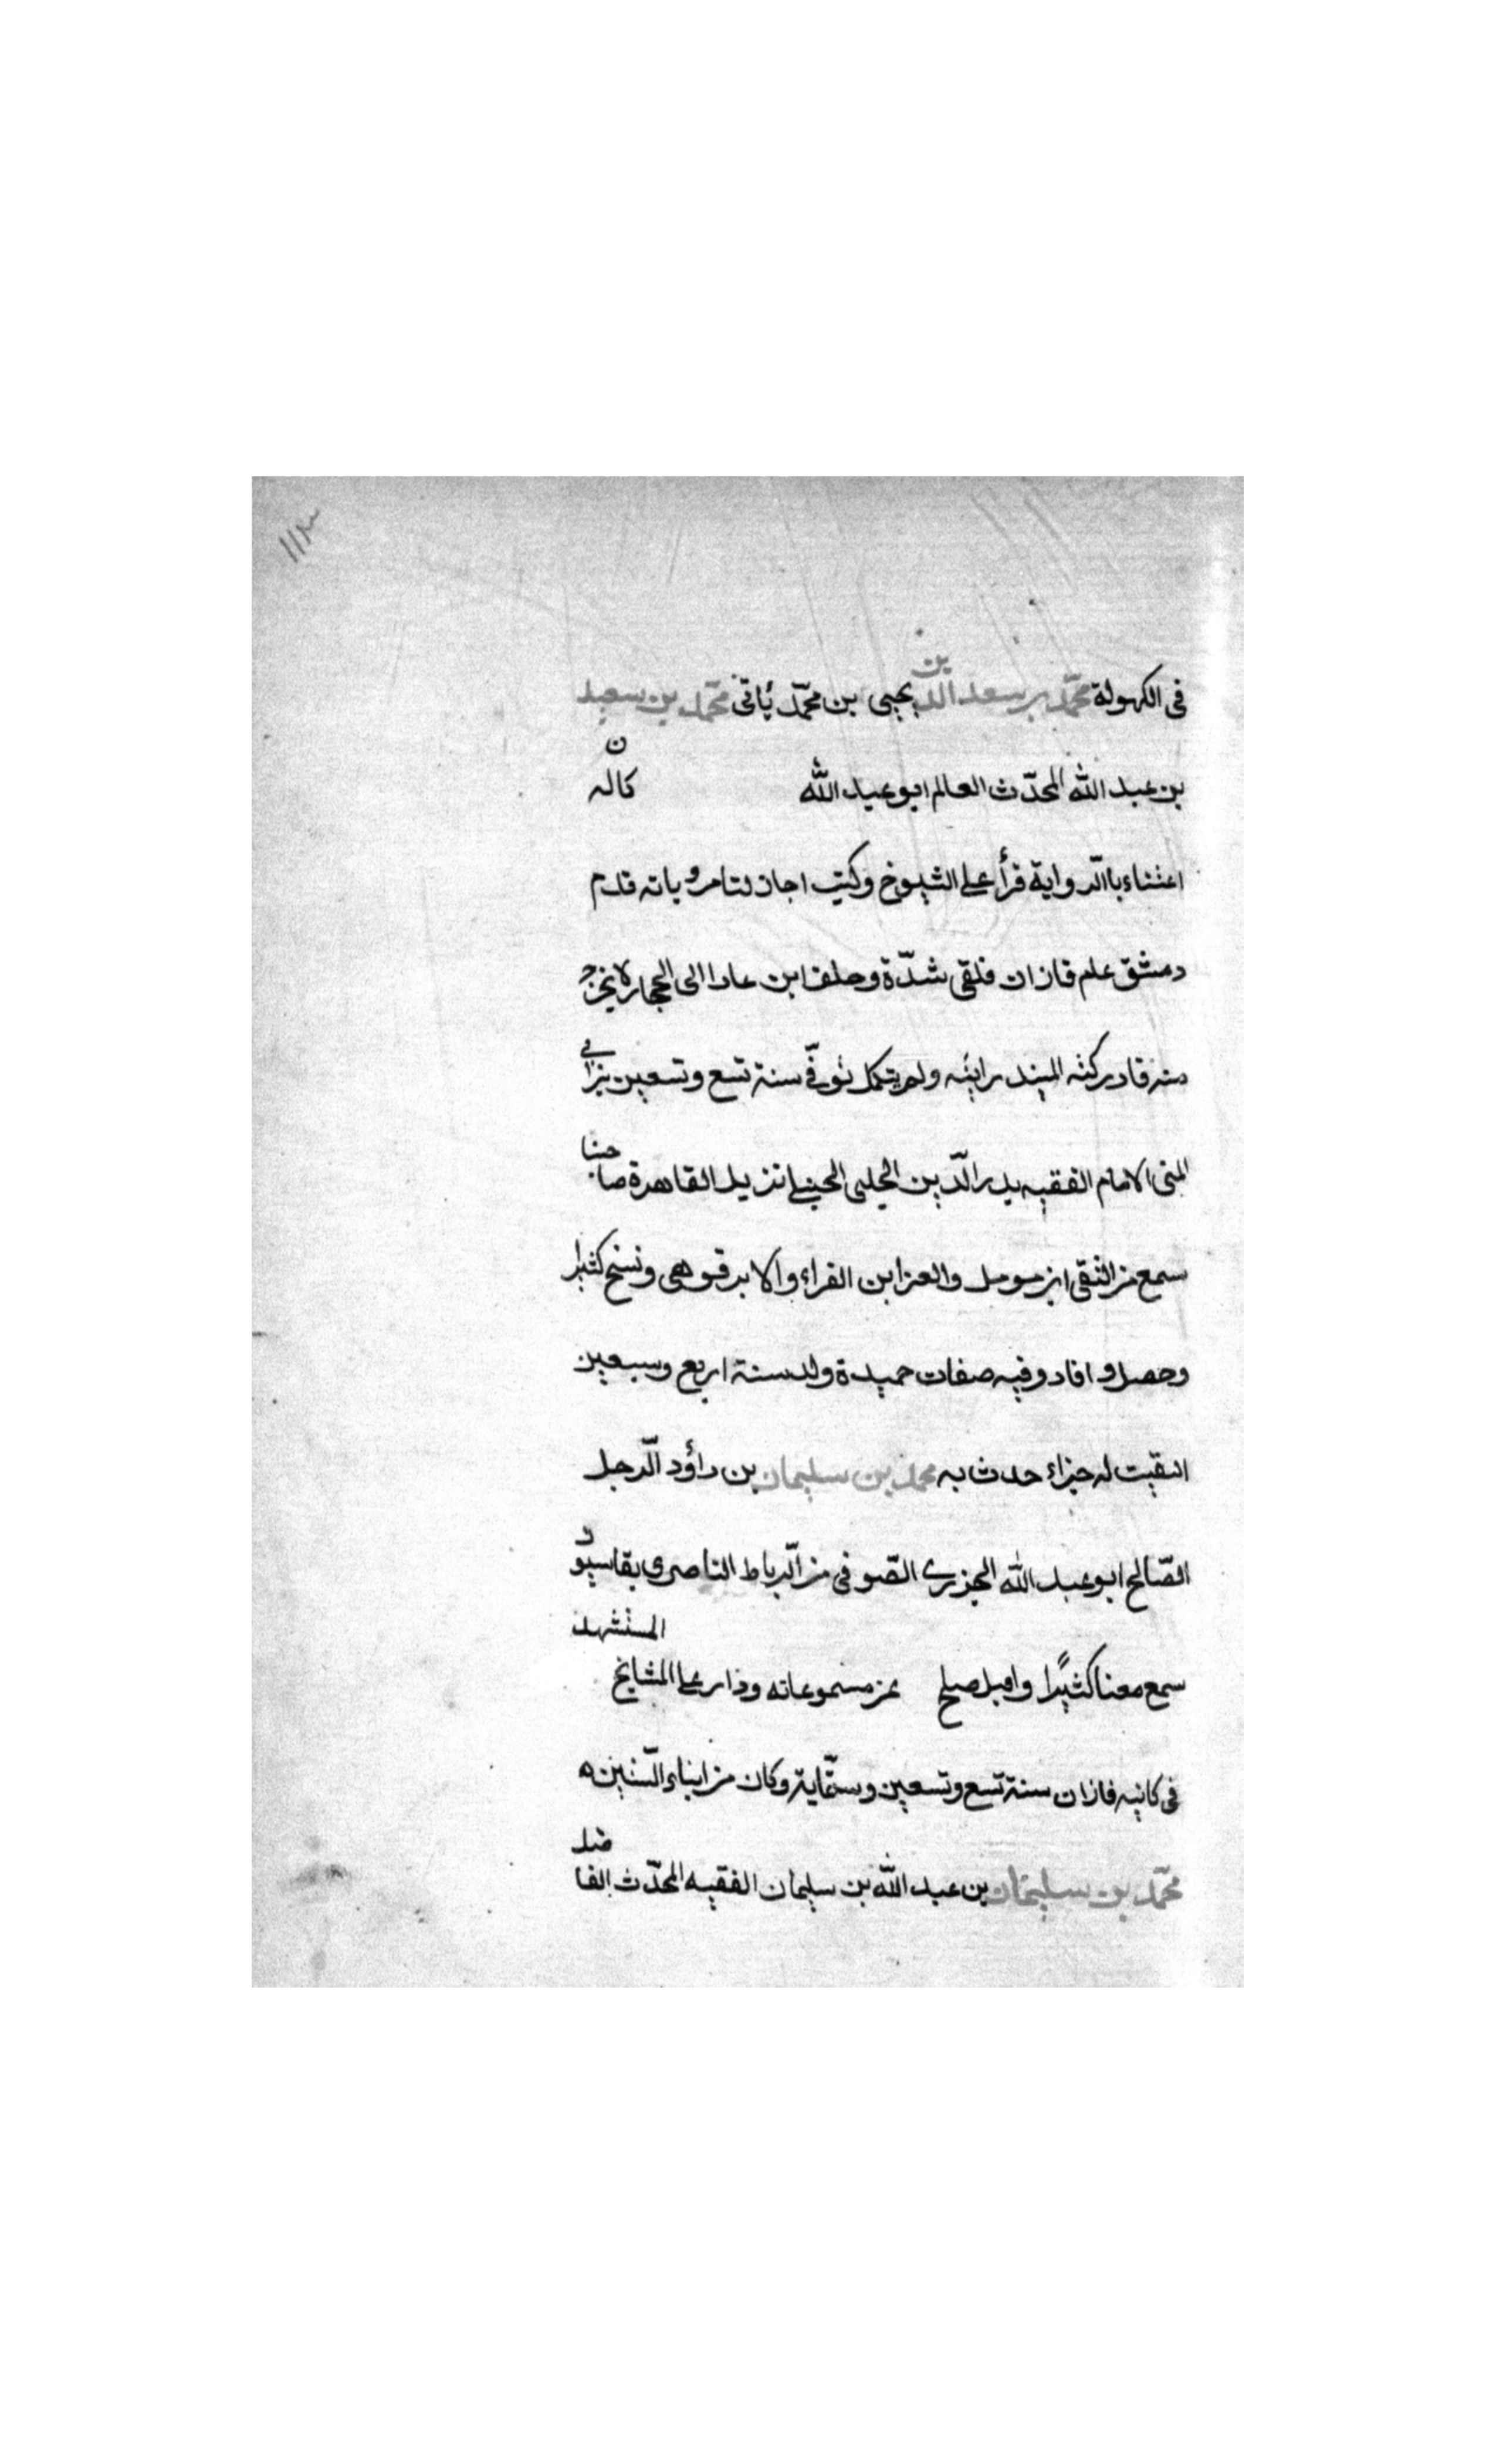 ١١٣
في الكهولة محمّد بن سعد الدّين يحيى بن محمّد يأتي محمّد بن سعيد
بن عبد الله المحدّث العالم ابو عبد الله كان له
اعتناء باالّرواية قرأ على الشيوخ وكتب اجاز لنا مروياته قدم
دمشق علم قازان فلقى شدّة وحلف ابن عادا الى الحجار لا يخرج
منه قادركته رايته ولم يتكمل توفّي سنة تسع وتسعين
الامام الفقيه بدر الّدين الحلبى الحنبلى نزيل القاهرة صاحبنا
سمع من التقى ابن مومل والعز ابن الفراء والابرقوهى ونسخ كثيرا
وحصل و افاد وفيه صفات حميدة ولد سنة اربع وسبعين
انتقيت له جزاء حدث به محمد بن سليمان بن داؤد الّرجل
الصّالح ابو عبد الله الجزري الصّوفي من الّرباط الناصرى بقاسيون
سمع معنا كثيرًا واقبل صلح عن مسموعاته ودار على المشايخ المستشهد
في كانيه قازان سنة تسع وتسعين وستمّاية وكان من ابناء السّتين ه
محمّد بن سليمان بن عبد الله بن سليمان الفقيه المحدّث الفاضل